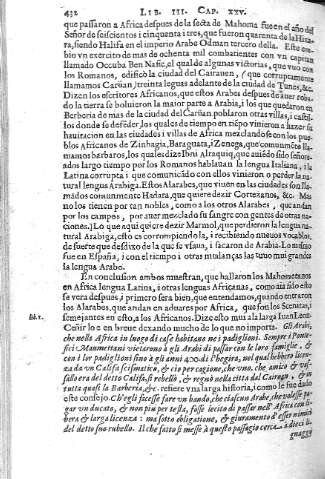 432 LIB. III. CAP. XXV.
que passaron a Africa despues de la secta de Mahoma fue en el año del
Señor de seiscientos i cinquenta i tres, que fueron quarenta de la Hixa-
ra, siendo Halifa en el imperio Arabe Odman tercero della. Este em-
bio vn exercito de mas de ochenta mil combatientes con vn capitan
llamado Occuba Ben Nafic, el qual de algunas victorias, que vuo con
los Romanos, edificò la ciudad del Cairauen, (que corruptamente
llamamos Caruan, treinta leguas adelante de la ciudad de Tunez, &c.
Dizen los escritores Africanos, que estos Arabes despues de auer roba-
do la tierra se boluieron la maior parte a Arabia, i los que quedaron en
Berberia de mas de la ciudad del Caruan poblaron otras villas, i casti-
llos donde se defender, los quales de tiempo en tiempo vinieron a hazer su
habitacion en las ciudades i villas de Africa mezclandose con los pue-
blos Africanos de Zinhagia, Baraguata, i Zenega, que comunmente lla-
mamos barbaros, los quales dize Ibni Alraquiq, que auiẽdo sido señorea-
dos largo tiempo por los Romanos hablauan la lengua Italiana, i la
Latina corrupta i que comunicãdo con ellos vinieron a perder la na-
tural lengua Arabiga. Estos Alarabes, que viuen en las ciudades son lla-
mados comunmente Hadara, que quiere dezir Cortezanos, &c. Mas
no los tienen por tan nobles, como a los otros Alarabes, que andan
por los campos, por auer mezclado su sangre con gentes de otras na-
ciones.) Lo que aqui quiere dezir Marmol, que perdieron la lengua na-
tural Arabiga, esto es corrompiendo la, i recibiendo nueuos vocablos,
de suerte que desdixo de la que se vsaua, i sacaron de Arabia. Lo mismo
fue en España, i con el tiempo a otras mudanças las tuuo mui grandes
la lengua Arabe.
En conclusion ambos muestran, que hallaron los Mahometanos
en Africa lengua Latina, i otras lenguas Africanas, como aia sido esto
se vera despues, i primero sera bien, que entendamos, quando entraron
los Alarabes, que andan en aduares por Africa, que son los Scenitas, i
semejantes en esto a los Africanos. Dize esto mui a la larga Iuan Leon.
Ceñir lo è en breue dexando mucho de lo que no importa. Gli Arabi,
che nella Africa in luogo di case habitano ne i padiglioni. Sempre i Ponte-
fici Maumettani vietarono à gli Arabi di passar con le loro famiglie, &
con i lor padiglioni sino à gli anni 400. di l'hegira, nel qual hebbero licen-
za da vn Califa scismatico, & cio per cagione, che vno, che amico & vas-
sallo era del detto Califa, si rebellò, & regnò nella città del Cairaoan, & in
tutta quasi la Barberia, &c. refiere vna larga historia, i como le fue dado
este consejo. Ch'egli facesse far vn bando, che ciascuno Arabe, che volesse pa-
gar vn ducato, & non piu per testa, fosse lecito di passar nell'Africa con li-
bera & larga licenza: ma sotto obligatione, & giuramento d'esser nimici
del detto suo rubello. Il che fatto si messe à questo passagio cerca à dieci li-
gnaggi